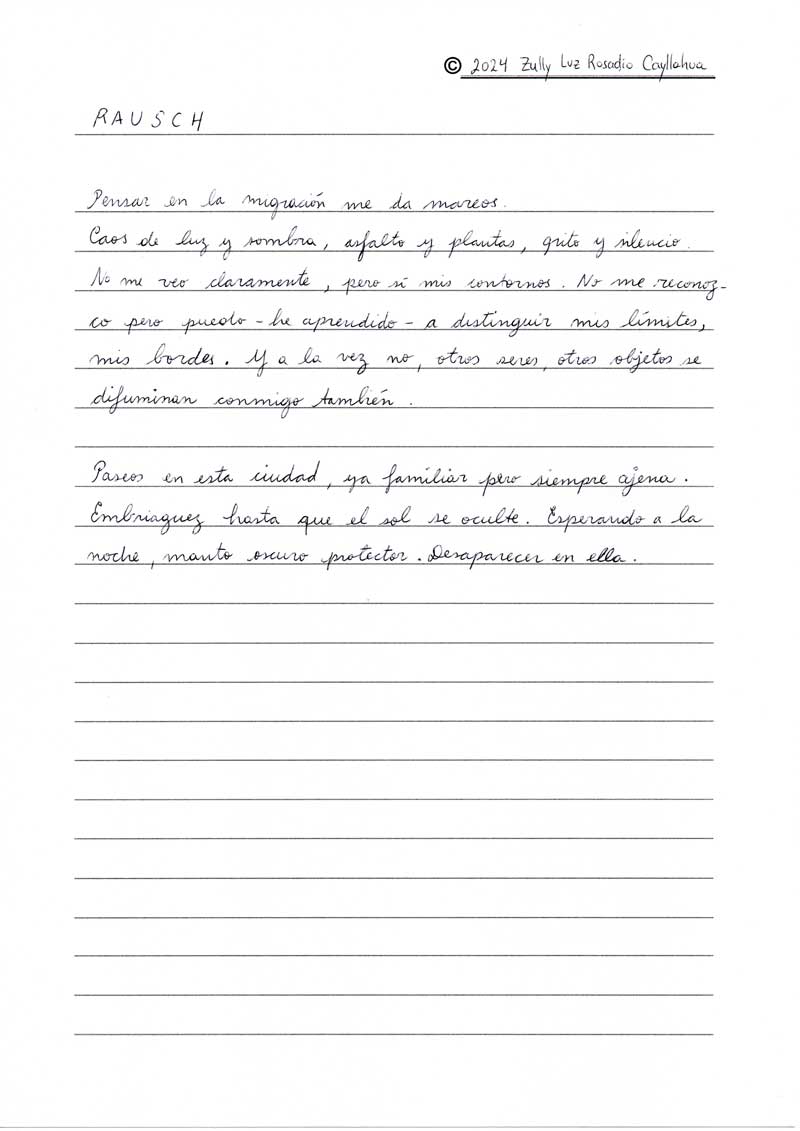 © 2024 Zully Luz Rosadio Cayllahua
RAUSCH
Pensar en la migración me da mareos.
Caos de luz y sombra, asfalto y plantas, grito y silencio.
No me veo claramente, pero sí mis contornos. No me reconoz-
co pero puedo - he aprendido - a distinguir mis límites,
mis bordes. Y a la vez no, otros seres, otros objetos se
difuminan conmigo también.
Paseos en esta ciudad, ya familiar pero siempre ajena.
Embriaguez hasta que el sol se oculte. Esperando a la
noche, manto oscuro protector. Desaparecer en ella.